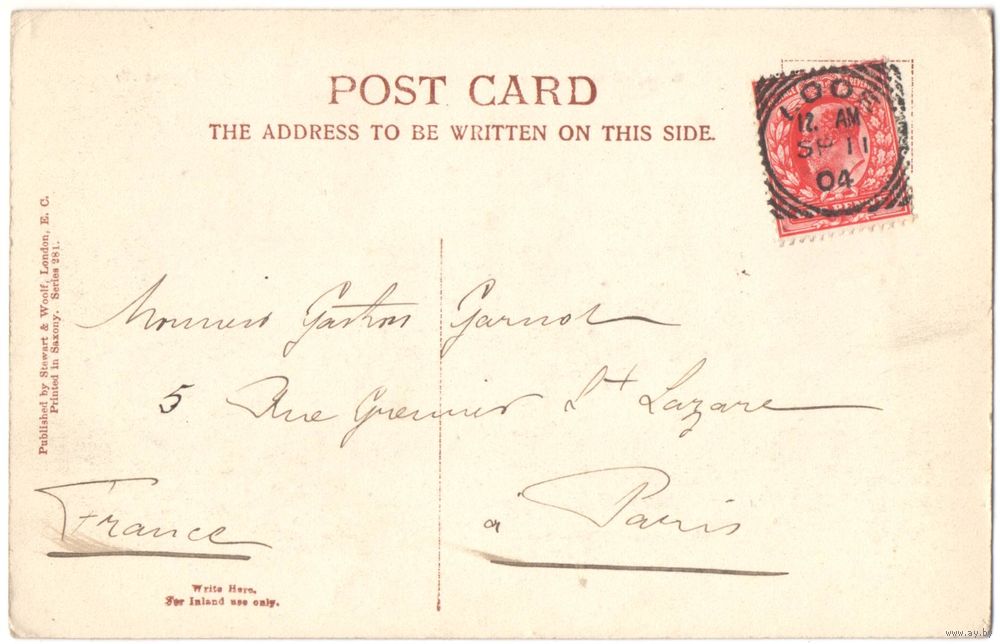 POST CARD
THE ADDRESS TO BE WRITTEN ON THIS SIDE.
LOOE
12. AM
SP 11
04
Published by Stewart & Woolf, London, E. C.
Printed in Saxony. Series 281.
Monsieur Gaston Garnot
5 Rue Grenier St Lazare
à Paris
France
Write Here.
For Inland use only.
www.ay.by